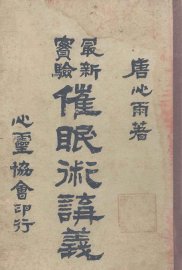 唐心雨著
最新
實驗
催眠術講義
心靈協會印行